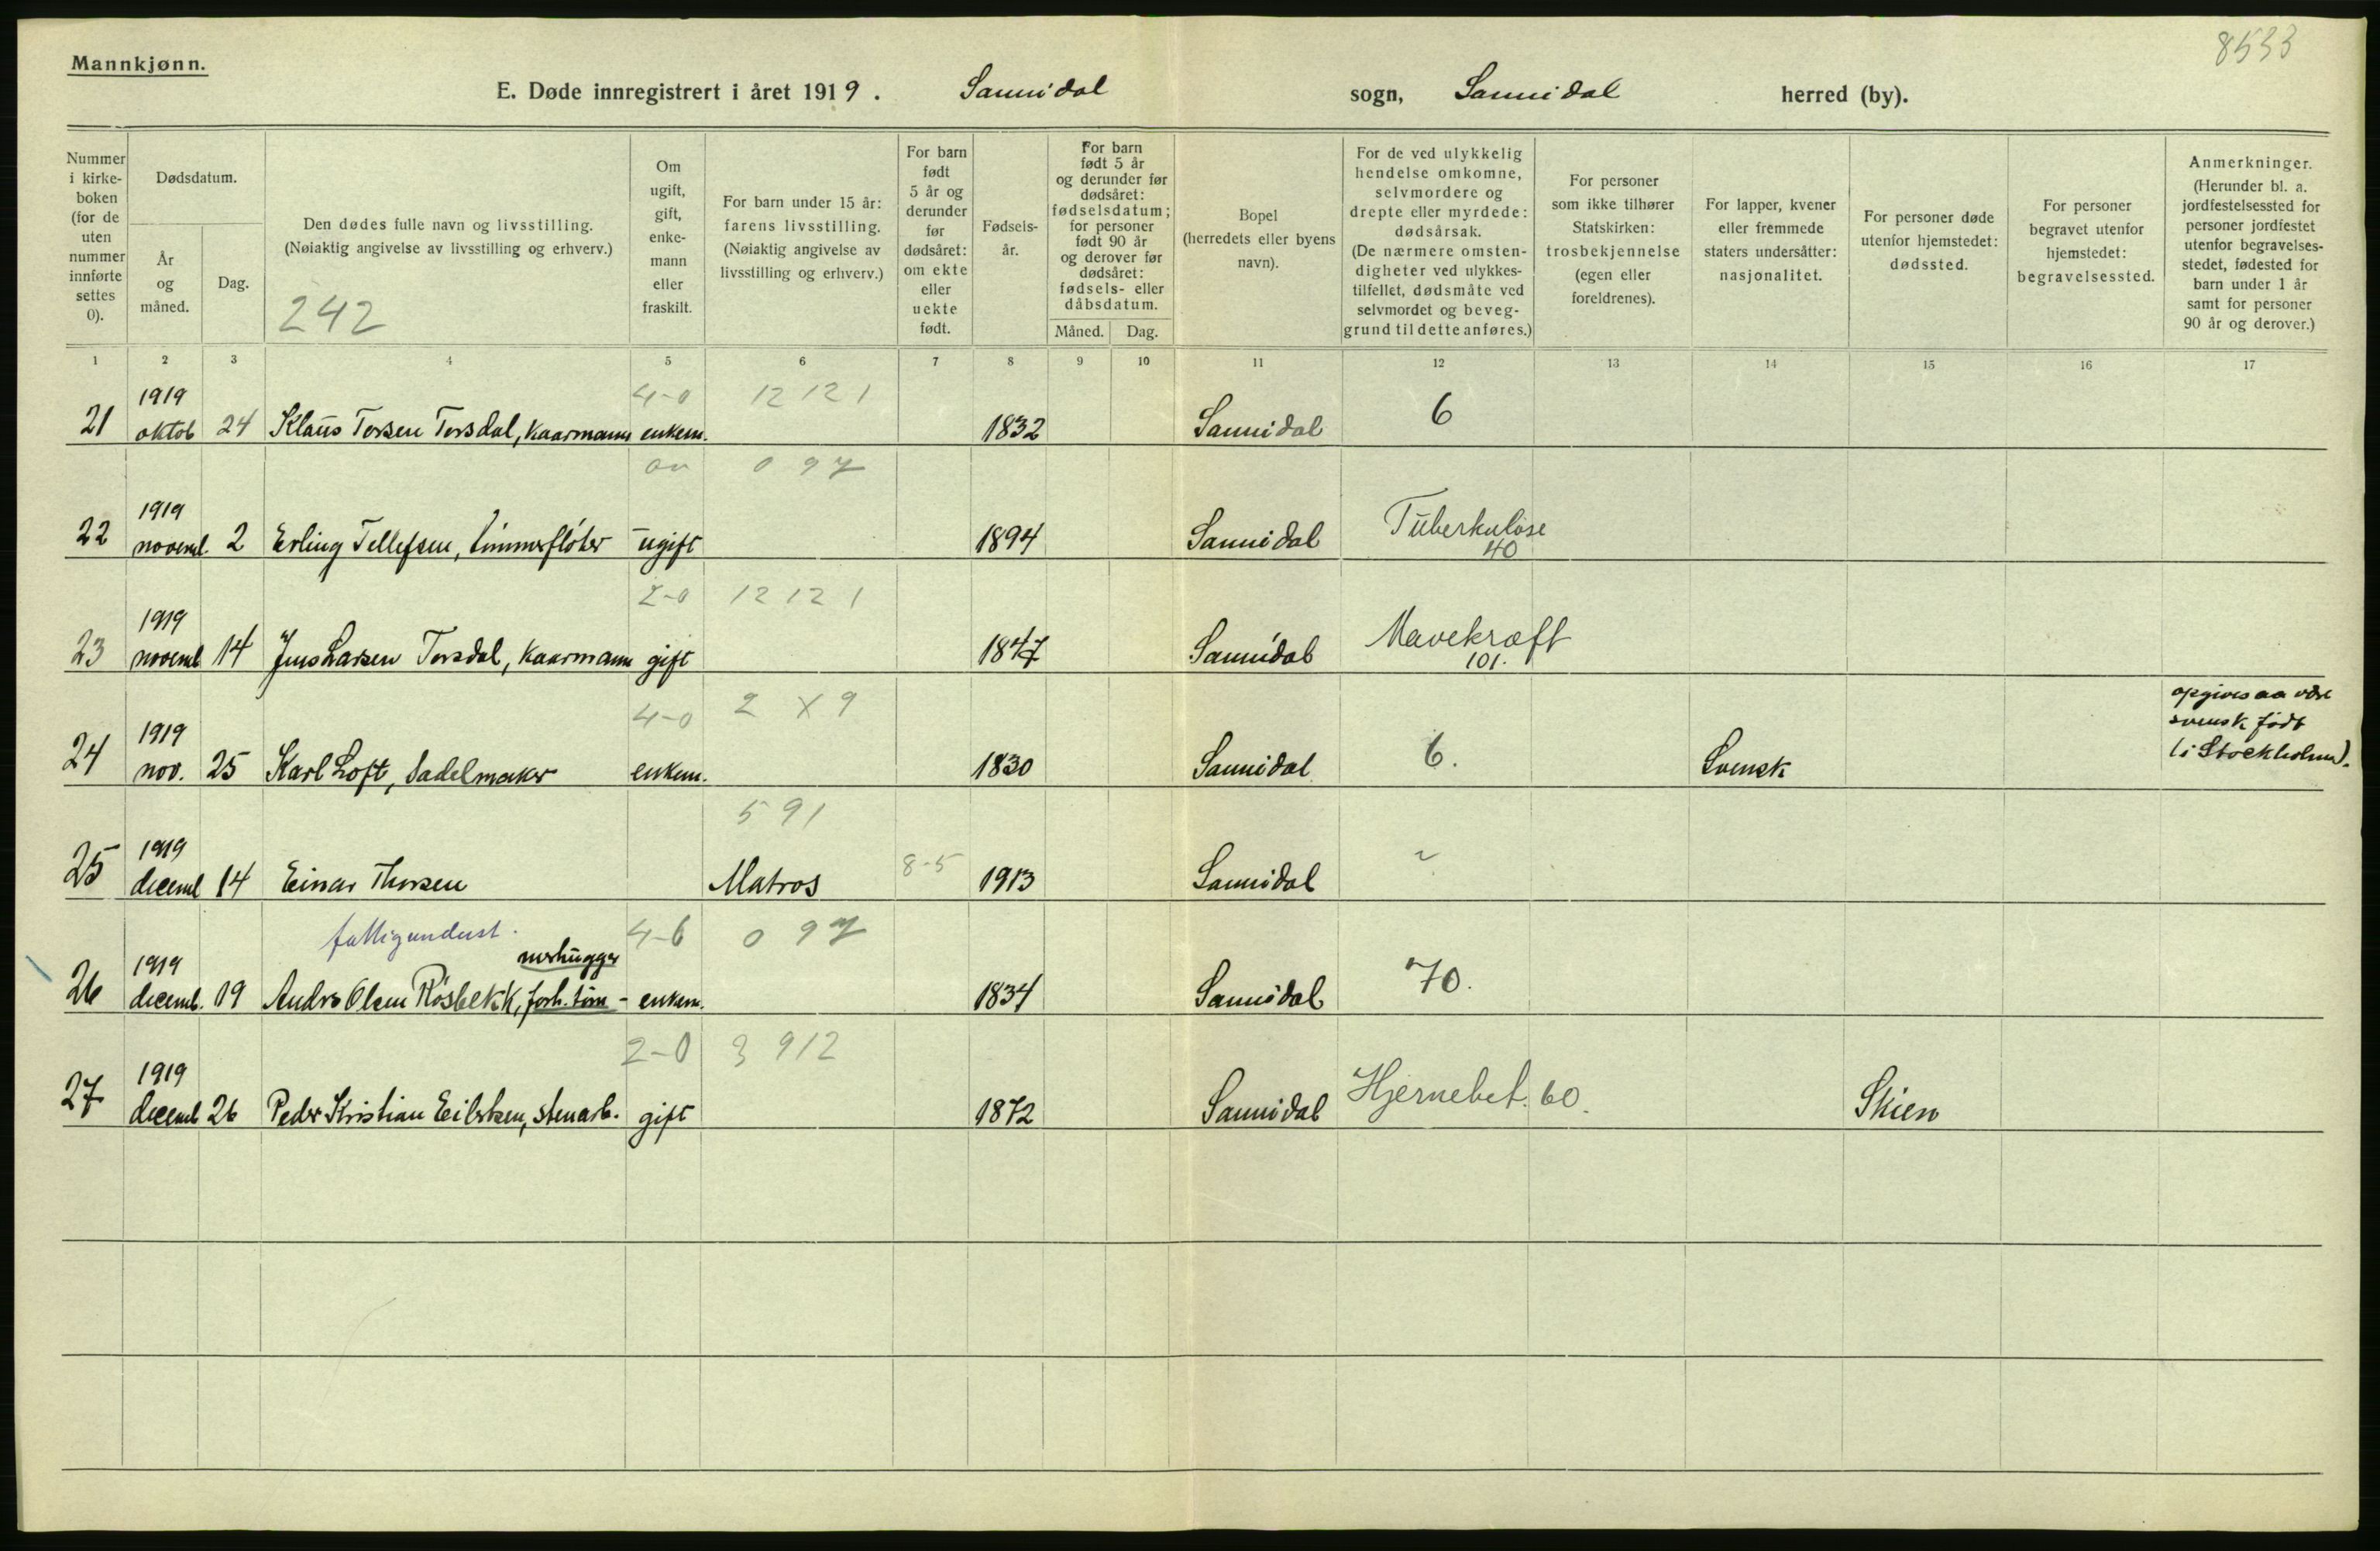 8533
Mannkjønn.
E. Døde innregistrert i året 1919. Sannidal sogn, Sannidal herred (by).
Nummer i kirke-boken (for de uten nummer innførte settes 0).
Dødsdatum.
År og måned.
Dag.
Den dødes fulle navn og livsstilling.
(Nøiaktig angivelse av livsstilling og erhverv.)
242
Om ugift, gift, enke-mann eller fraskilt.
For barn under 15 år: farens livsstilling.
(Nøiaktig angivelse av livsstilling og erhverv.)
For barn født 5 år og derunder før dødsåret: om ekte eller uekte født.
Fødsels-år.
For barn født 5 år og derunder før dødsåret: fødselsdatum; for personer født 90 år og derover før dødsåret: fødsels- eller dåbsdatum.
Måned. Dag.
Bopel (herredets eller byens navn).
For de ved ulykkelig hendelse omkomne, selvmordere og drepte eller myrdede: dødsårsak.
(De nærmere omsten-digheter ved ulykkes-tilfellet, dødsmåte ved selvmordet og beveg-grund til dette anføres.)
For personer som ikke tilhører Statskirken: trosbekjennelse (egen eller foreldrenes).
For lapper, kvener eller fremmede staters undersåtter: nasjonalitet.
For personer døde utenfor hjemstedet: dødssted.
For personer begravet utenfor hjemstedet: begravelsessted.
Anmerkninger.
(Herunder bl. a. jordfestelsessted for personer jordfestet utenfor begravelses-stedet, fødested for barn under 1 år samt for personer 90 år og derover.)
1 2 3 4 5 6 7 8 9 10 11 12 13 14 15 16 17
4-0 12 12 1
21 1919 oktob 24 Klaus Torsen Torsdal, Kaarmann enkem. 1832 Sannidal 6
0 9 7
22 1919 novemb. 2 Erling Tellefsen, tømmerfløter ugift 1894 Sannidal Tuberkulose 40
2-0 12 12 1
23 1919 novemb 14 Jens Larsen Torsdal, Kaarmann gift 1847 Sannidal Mavekræft 101.
4-0 2 X 9
24 1919 nov. 25 Karl Loft, Sadelmaker enkem. 1830 Sannidal 6. Svensk opgives aa være svensk født (i Stockholm).
5 9 1
25 1919 decemb 14 Einar Thorsen Matros 8-5 1913 Sannidal
fattigunderst. 4-6 0 9 7
26 1919 decemb. 19 Andrs Olsen Røsbekk, forh. tøm- merhugger enkem. 1834 Sannidal 70.
2-0 3 9 12
27 1919 decemb 26 Peder Kristian Eilertsen, stenarb. gift 1872 Sannidal Hjernebet. 60. Skien